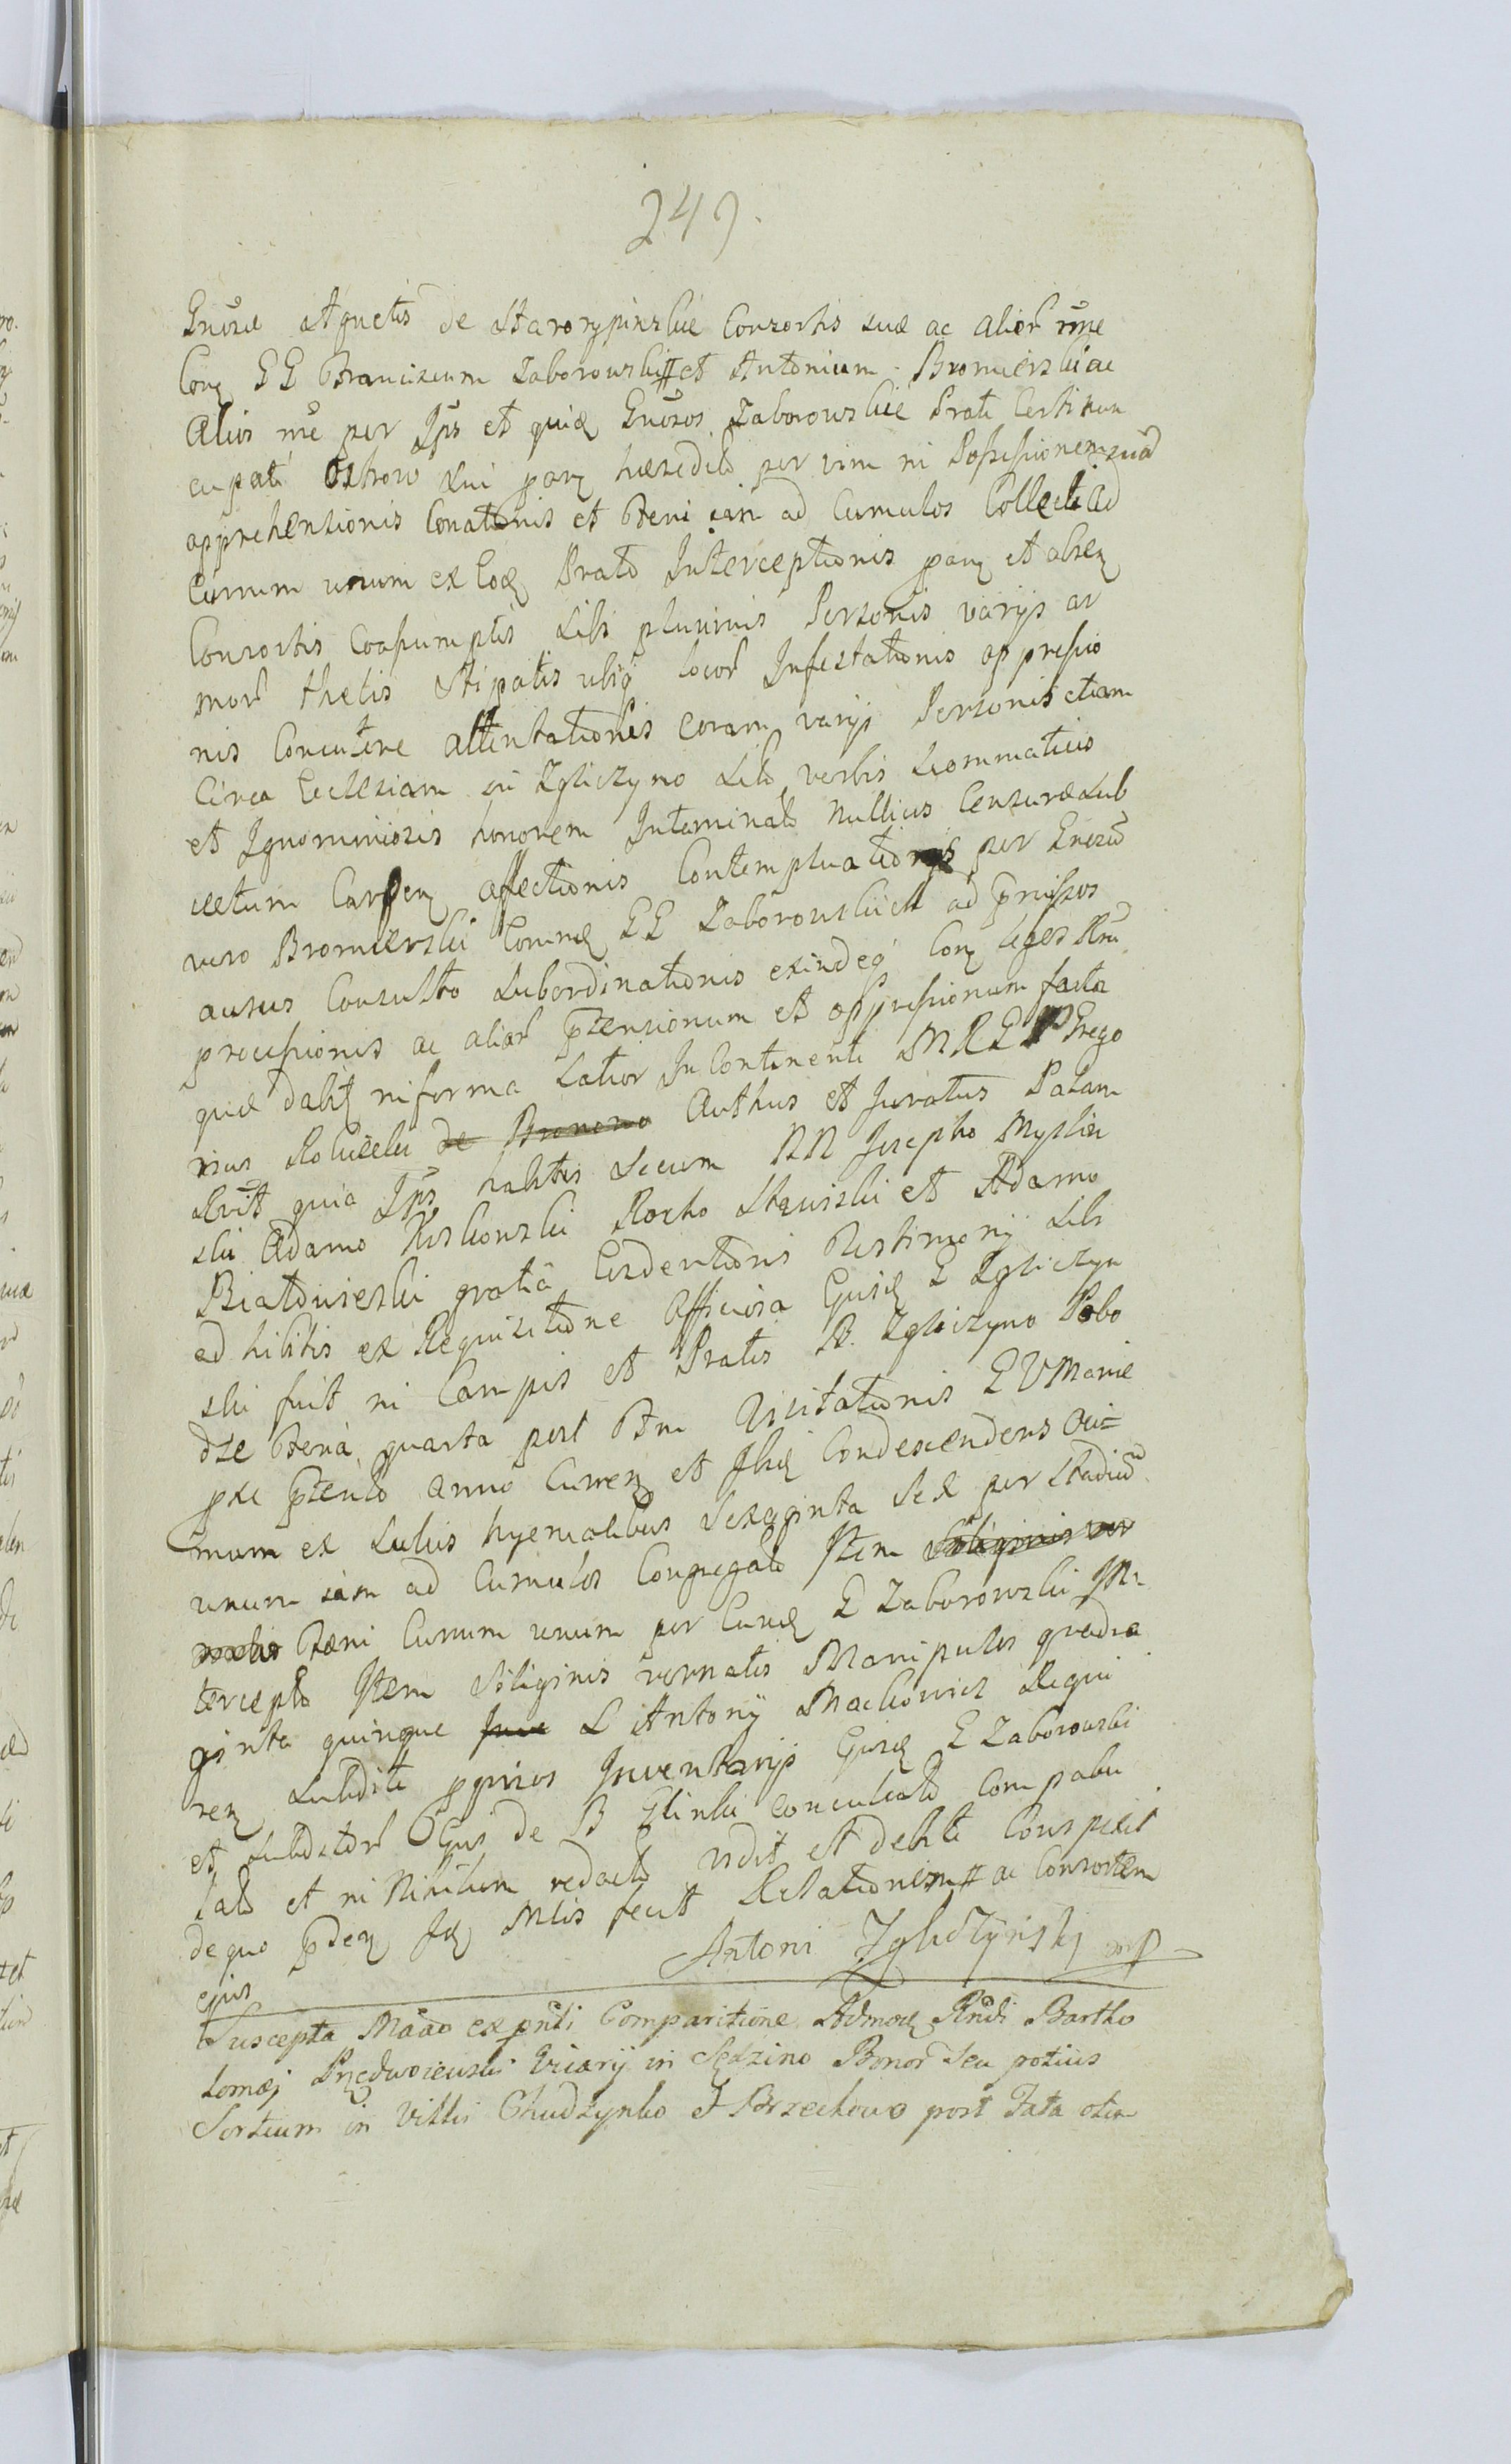 249.
Gnosæ Agnetis de Starorypinskie Consortis suæ ac alior̃ rñe
Conq GG Franciscum Zaborowski # et Antonium Bromierski ac
Alios rñe per Ips et quidq Gnosos Zaborowskie Prati Certi nun
cupati Ostrow sui parq hæredit per vim ni Possessionem suã
apprehensionis Conationis et fæni iam ad Cumulos Collecti ad
Currum unum ex Eodq Prato Interceptionis parq et absenq
Consortis Coassumptis sibi plurimis Personis varijs ar
mor̃ thelis stipatis ubiq locor̃ Infestationis oppressio
nis Concutere attentationis coram varijs Personis etiam
Circa Ecclesiam in Zgliczyno Sito verbis Scommaticis
et Ignominiosis honorem Intaminato nullius Censuræ sub
iectum Carpenq affectionis Contemptuationis per Gnosũ
vero Bromierski Commq GG Zaborowskiich ad præmissos
ausus Consulto Subordinationis exindeq Conq leges Rni
processionis ac aliar̃ ptensionum et oppressionum facta
quæ dabitq in forma Latior In Continenti MRG P Grego
rius Rokicki de Bronono Authus et Juratus Palam
Rvit quia Ips habitis Secum NN Josepho Myslin
ski Adamo Roskowski Rocho Stawiski et Adamo
Białowieski gratia Evidentioris Testimonij Sibi
ad hibitis ex Requisitione Officiosa Gnsiq G Zgliczyn
ski fuit ni Campis et Pratis B. Zgliczyno Pobo
dze Feria quarta post Ftm Visitationis B V Mariæ
pxe pterito anno Currenq et Ibiq Condescendens Oui=
mum ex Sulcis hyemalibus Sexaginta Sex per Stadiũ
unum iam ad Cumulos Congregato Item Siliginis ver
nalis Fæni Currum unum per Eundq G Zaborowski In
tercepto Item Siliginis vernalis Manipulos quadra
ginta quinque Juve L Antonij Mackowicz Requi
renq Subditi pprios Inventarijs Gnsq G Zaborowski
et Subditor̃ Ejus de B Glinki conculcato Compabu
lato et ni Nihilum redacto vidit et debite Conspexit
de quo pdenq Idq Mlis fecit Relationem # ac Consortem
ejus
Antoni Zgliczyński mp
Suscepta Mãao ex pnti Comparitione Admodq Rndi Bartho
lomæj Przedwoiewski Vicarij in Sędzino Bonor̃ seu potius
Sortium in Villis Chudzynko et Brzechowo post Fata olim